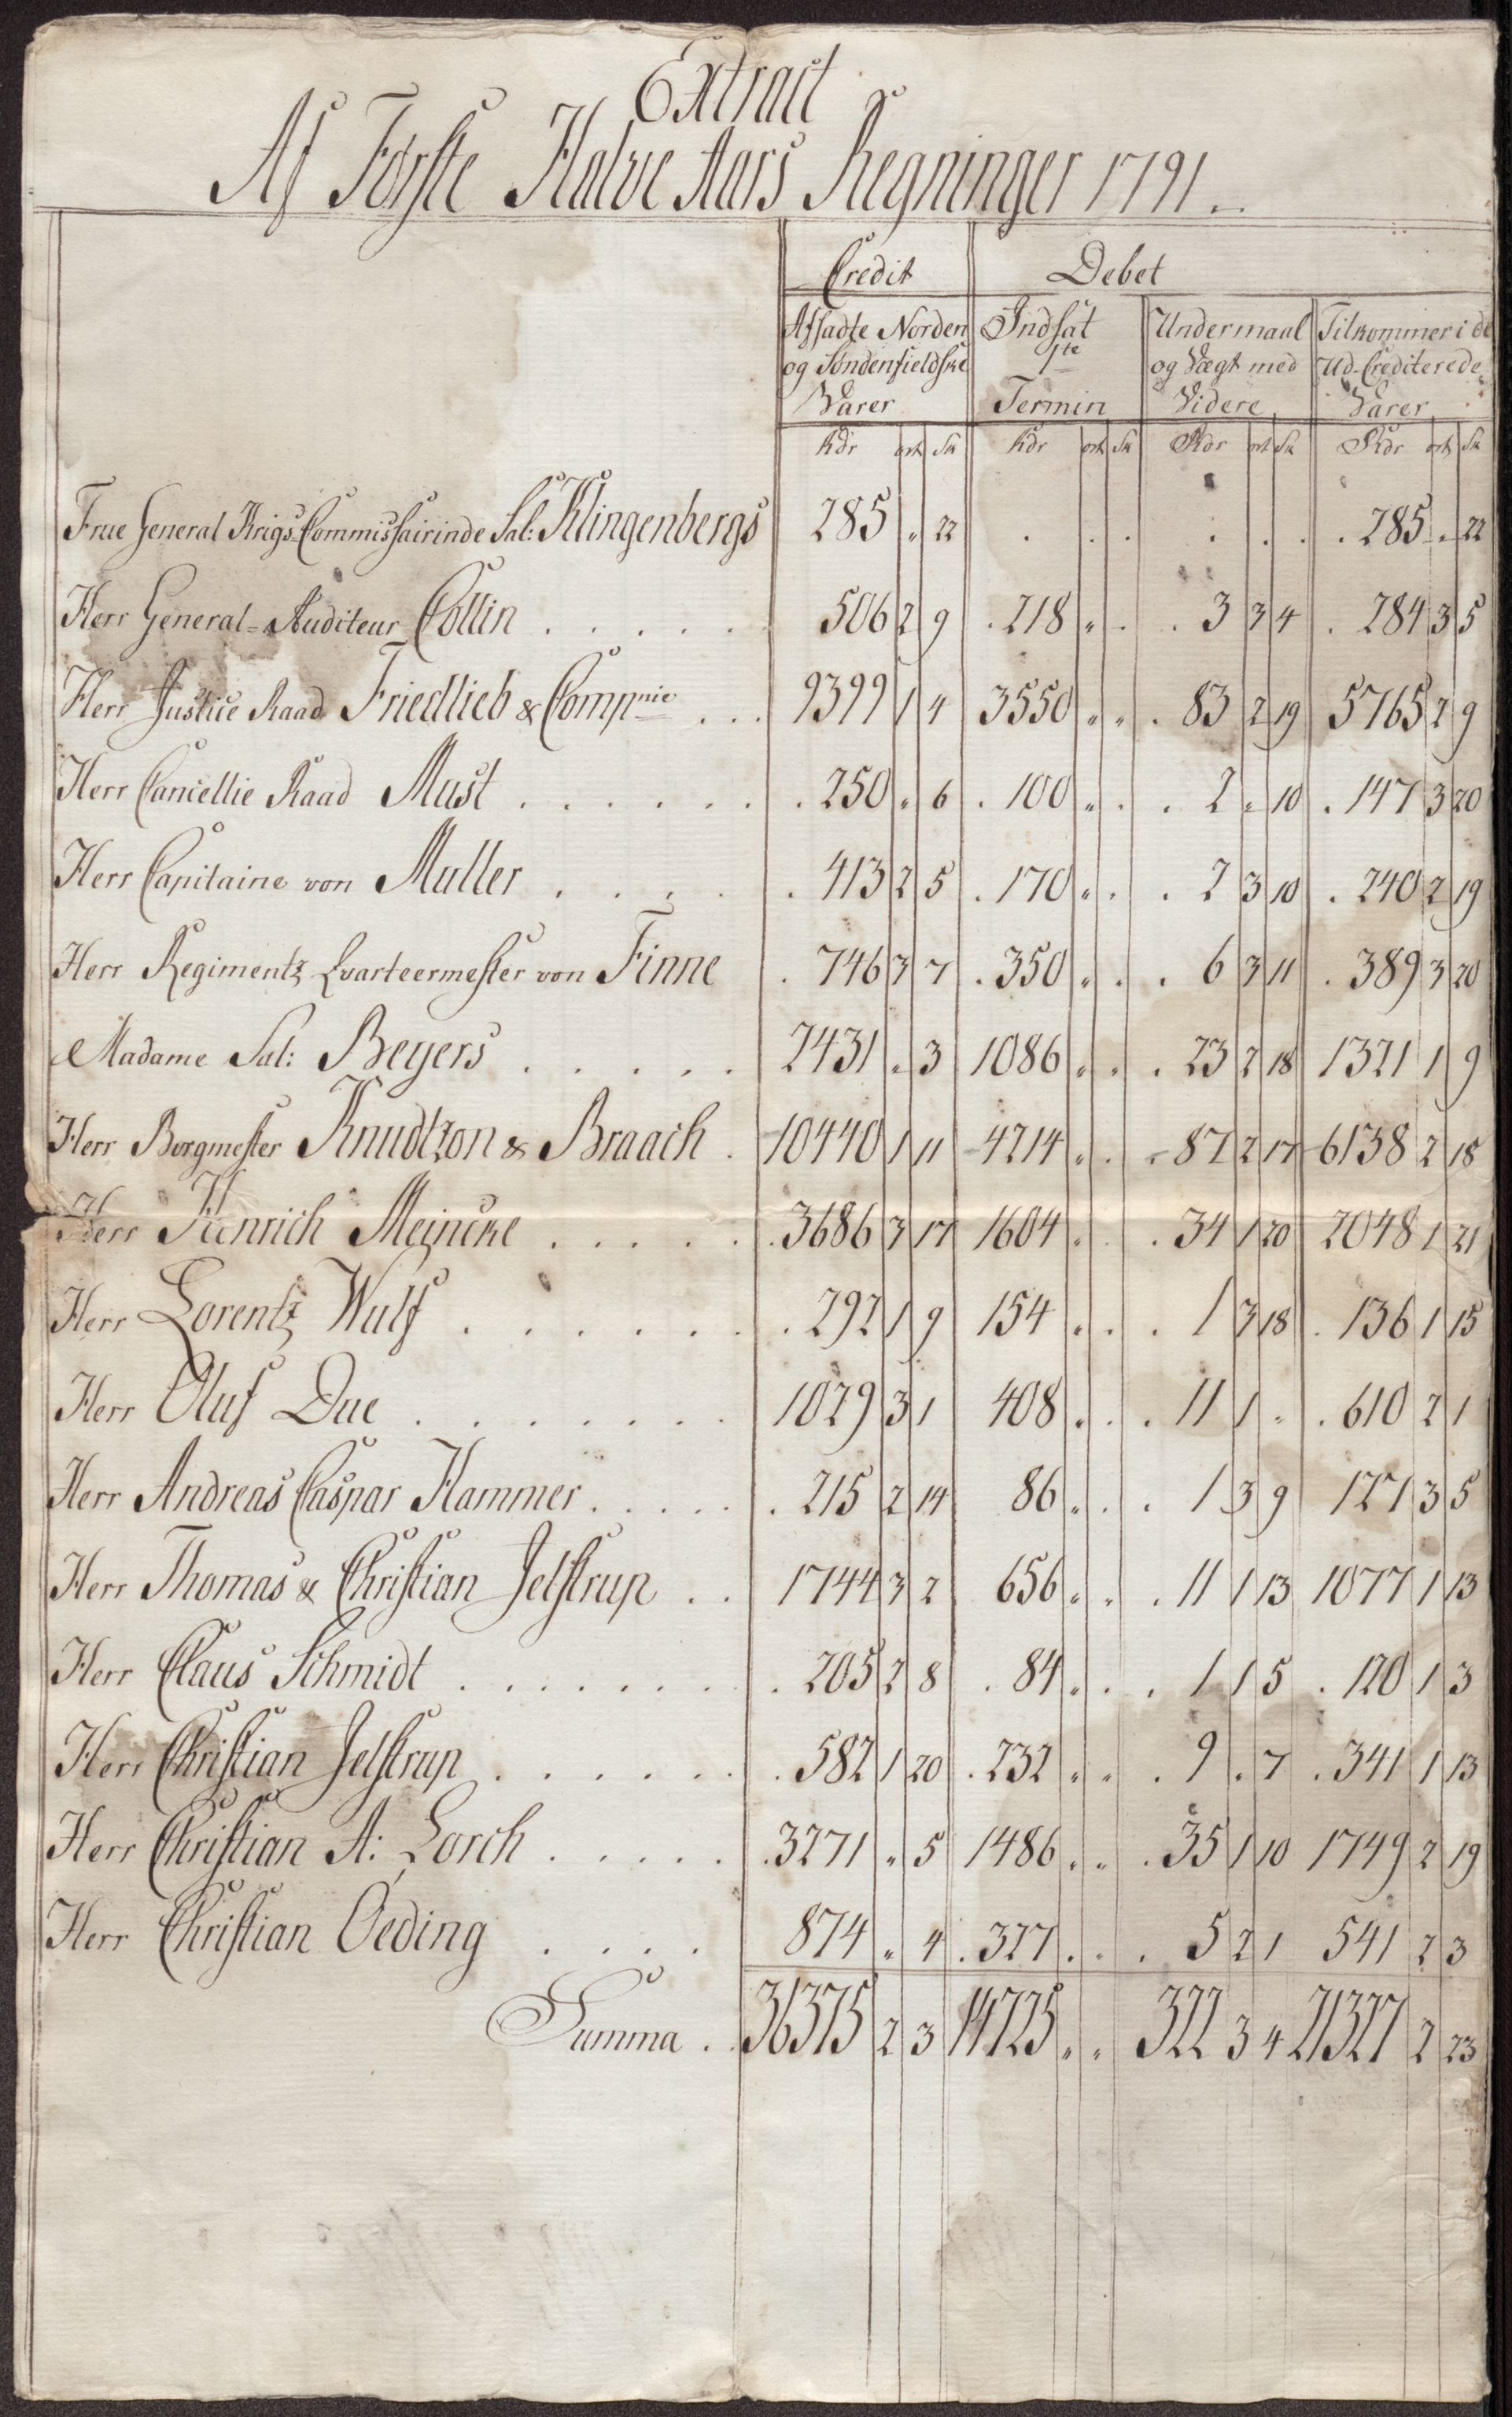 Extract
Af Første Halve Aars Regninger 1791.
Credit Debet
Afsadte Norden og Søndenfieldske Varer
Indsat 1te Termin
Undermaal og Vægt med Videre
Tilkommer i de Ud-Crediterede Varer
Rdr ort Sk Rdr ort Sk Rdr ort Sk Rdr ort Sk
Frue General Krigs Commissairinde Sal: Klingenbergs 285 " 22 . . . . . . 285 " 22
Herr General-Auditeur Collin . . . . . 506 2 9 . 218 " . . 3 3 4 . 284 3 5
Herr Justice Raad Friedlieb & Compnie . . . 9399 1 4 3550 " " . 83 2 19 5765 2 9
Herr Cancellie Raad Must . . . . . . . 250 " 6 . 100 " . . 2 " 10 . 147 3 20
Herr Capitaine von Muller . . . . . 413 2 5 . 170 " . . 2 3 10 . 240 2 19
Herr Regimentz Qvarteermester von Finne . 746 3 7 . 350 " . . 6 3 11 . 389 3 20
Madame Sal: Beyers . . . . . 2431 " 3 1086 " . . 23 2 18 1321 1 9
Herr Borgmester Knudtzon & Braach . 10440 1 11 4214 " . . 87 2 17 6138 2 18
Herr Henrich Meincke . . . . . . 3686 3 17 1604 " . . 34 1 20 2048 1 21
Herr Lorentz Wulf . . . . . . . . 292 1 9 154 " . . 1 3 18 . 136 1 15
Herr Oluf Due . . . . . . . 1029 3 1 408 " . . 11 1 " . 610 2 1
Herr Andreas Caspar Hammer . . . . . 215 2 14 86 " . . 1 3 9 127 3 5
Herr Thomas & Christian Jelstrup . . 1744 3 2 656 " " . 11 1 13 1077 1 13
Herr Claus Schmidt . . . . . . . . 205 2 8 . 84 " . . 1 1 5 . 120 1 3
Herr Christian Jelstrup . . . . . . . 582 1 20 . 232 " " . 9 . 7 . 341 1 13
Herr Christian A: Lorch . . . . . . 3271 " 5 1486 " " . 35 1 10 1749 2 19
Herr Christian Oeding . . . . 874 " 4 . 327 . . . 5 2 1 541 2 3
Summa . . 36375 2 3 14725 " " 322 3 4 21327 2 23